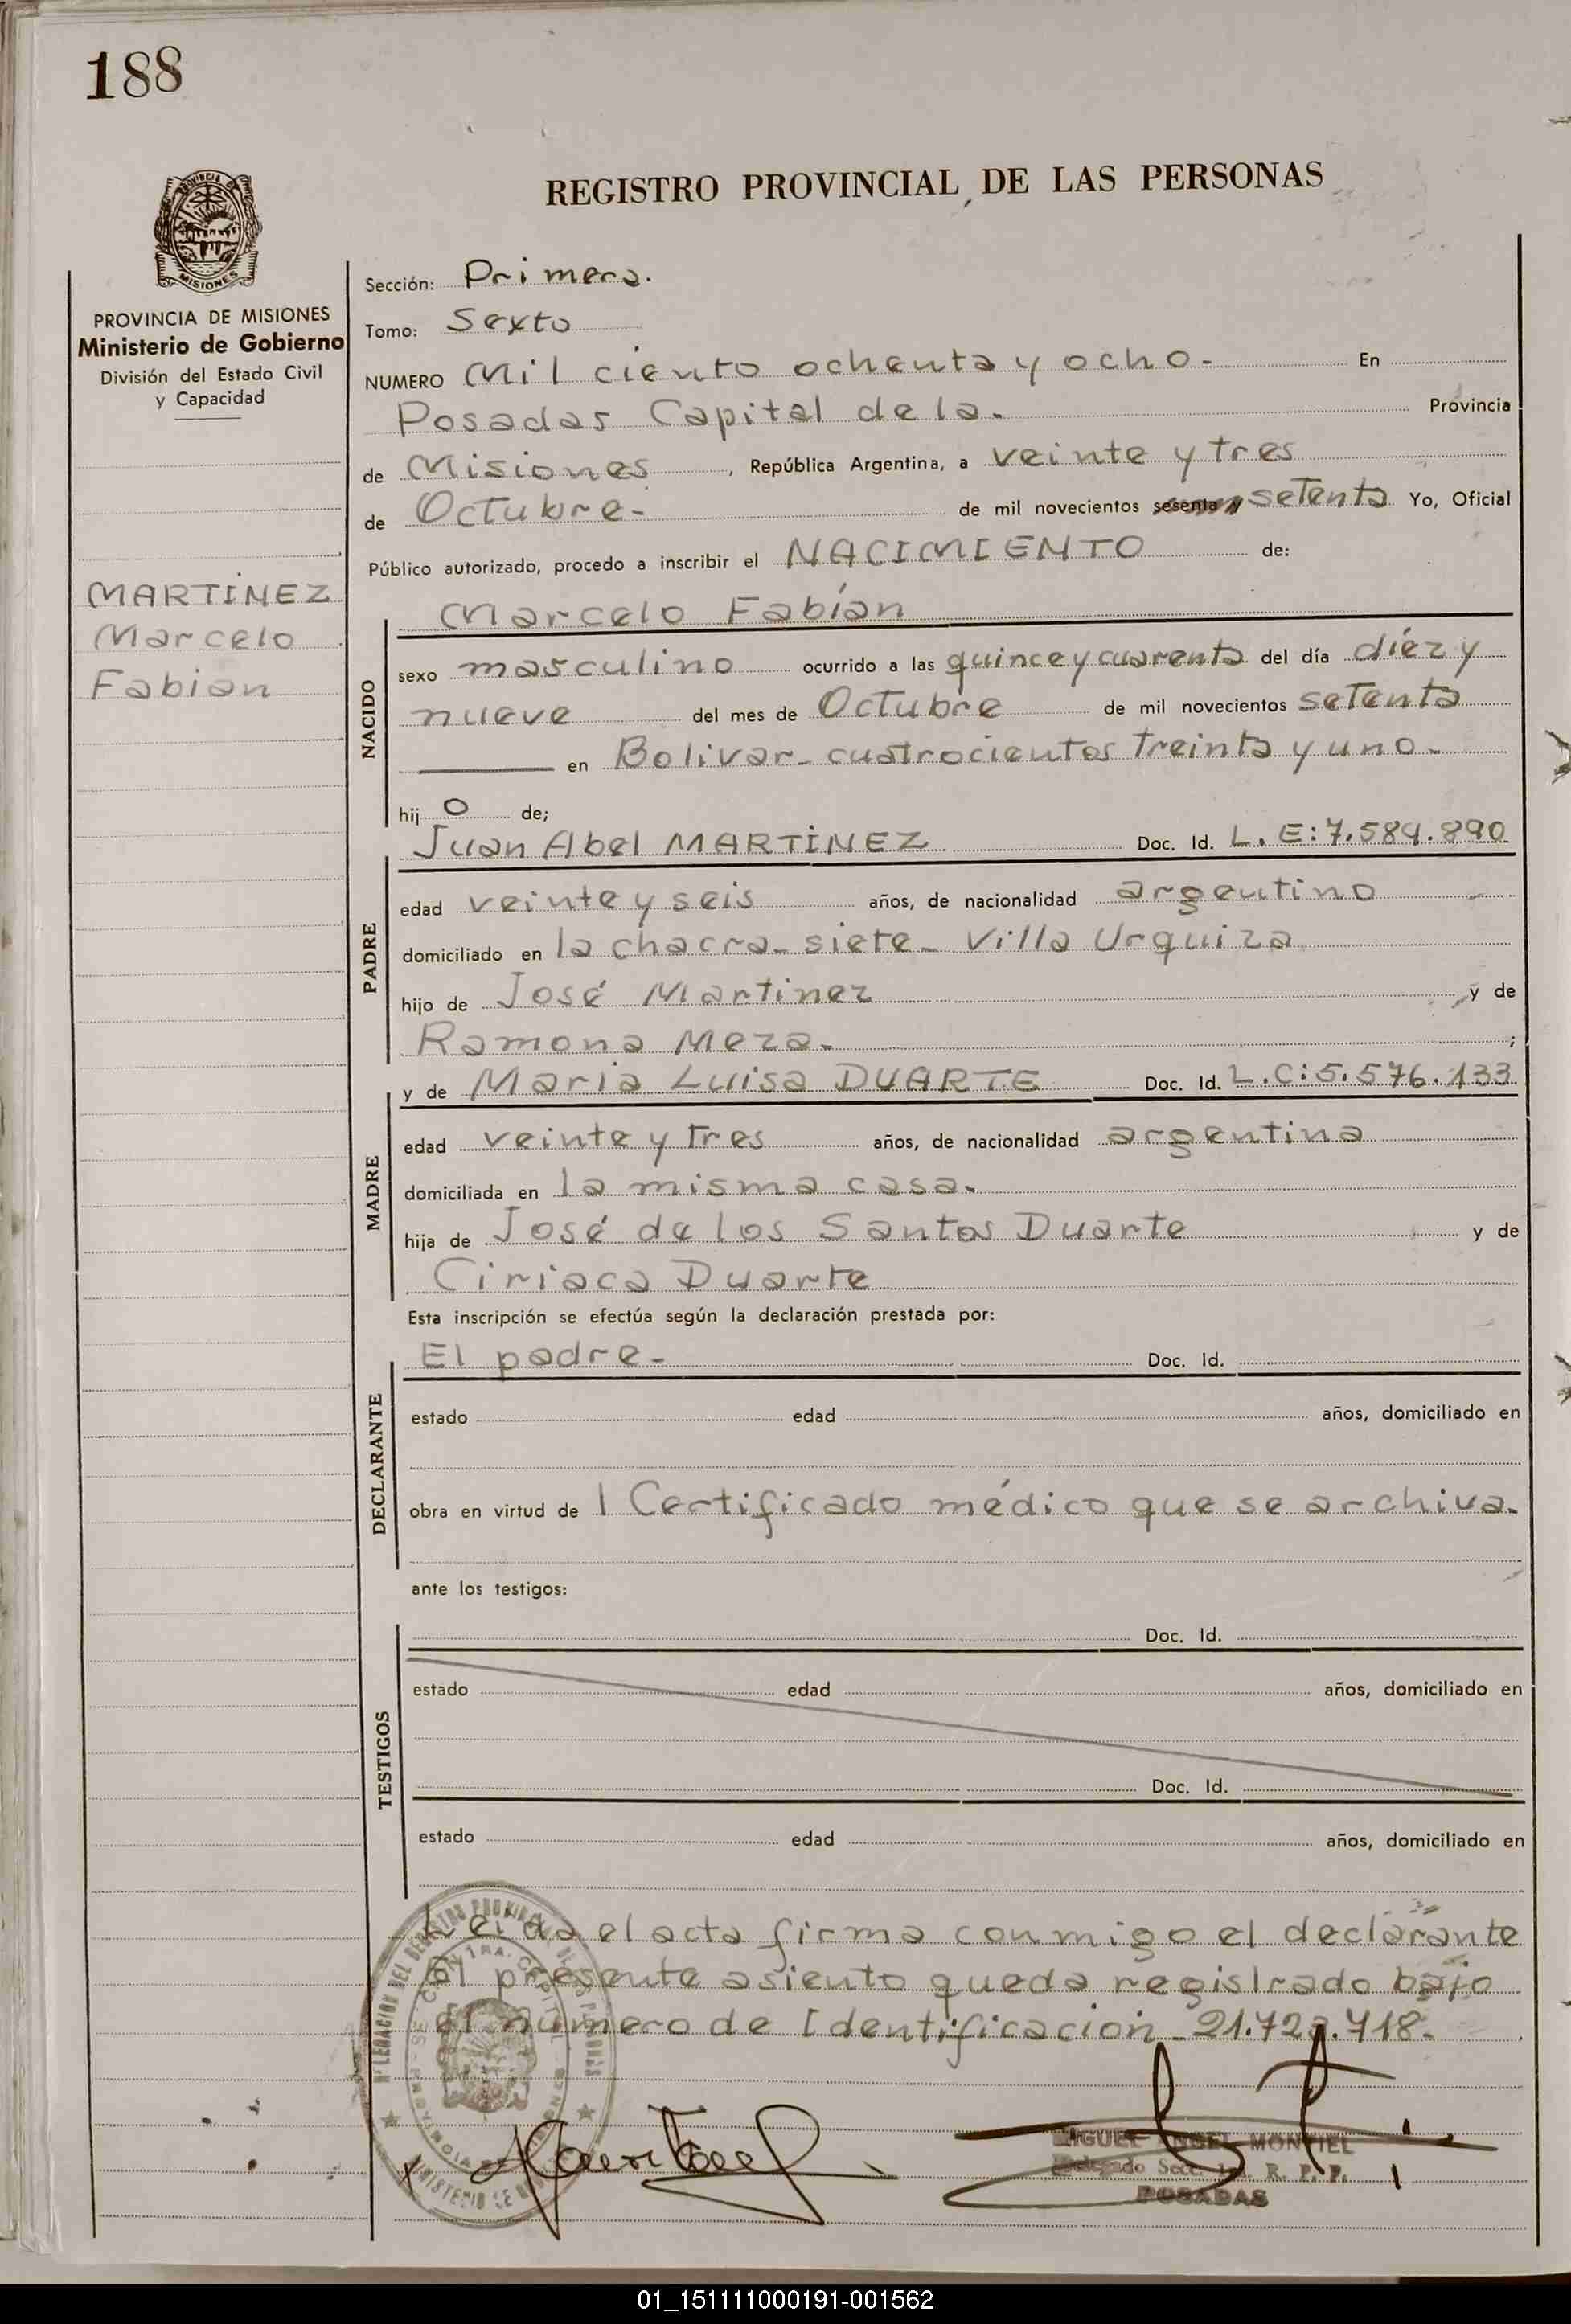 188
REGISTRO PROVINCIAL DE LAS PERSONAS
PROVINCIA DE MISIONES
Ministerio de Gobierno
División del Estado Civil
y Capacidad
MARTINEZ
Marcelo
Fabian
Sección: Primera.
Tomo: Sexto
NUMERO Mil ciento ochenta y ocho- En
Posadas Capital de la. Provincia
de Misiones, República Argentina, a veinte y tres
de Octubre- de mil novecientos sesenta y setenta Yo, Oficial
Público autorizado, procedo a inscribir el NACIMIENTO de:
Marcelo Fabían
NACIDO
sexo masculino ocurrido a las quince y cuarenta del día díez y
nueve del mes de Octubre de mil novecientos setenta
en Bolivar- cuatrocientos treinta y uno-
hijo de;
Juan Abel MARTINEZ Doc. Id. L.E:7.584.890
PADRE
edad veinte y seis años, de nacionalidad argentino
domiciliado en la chacra- siete- Villa Urquiza
hijo de José Martinez y de
Ramona Meza- ;
y de Maria Luisa DUARTE Doc. Id. L.C:5.576.133
MADRE
edad veinte y tres años, de nacionalidad argentina
domiciliada en la misma casa-
hija de José de los Santos Duarte y de
Ciriaca Duarte
Esta inscripción se efectúa según la declaración prestada por:
El padre- Doc. Id.
DECLARANTE
estado edad años, domiciliado en
obra en virtud de 1 Certificado médico que se archiva-
ante los testigos:
Doc. Id.
TESTIGOS
estado edad años, domiciliado en
Doc. Id.
estado edad años, domiciliado en
Leída el acta firma conmigo el declarante
El presente asiento queda registrado bajo
el número de Identificación - 21.723.718-
MIGUEL ANGEL MONTIEL
Delegado Secc. 1ra. R. P. P.
POSADAS
01_151111000191-001562